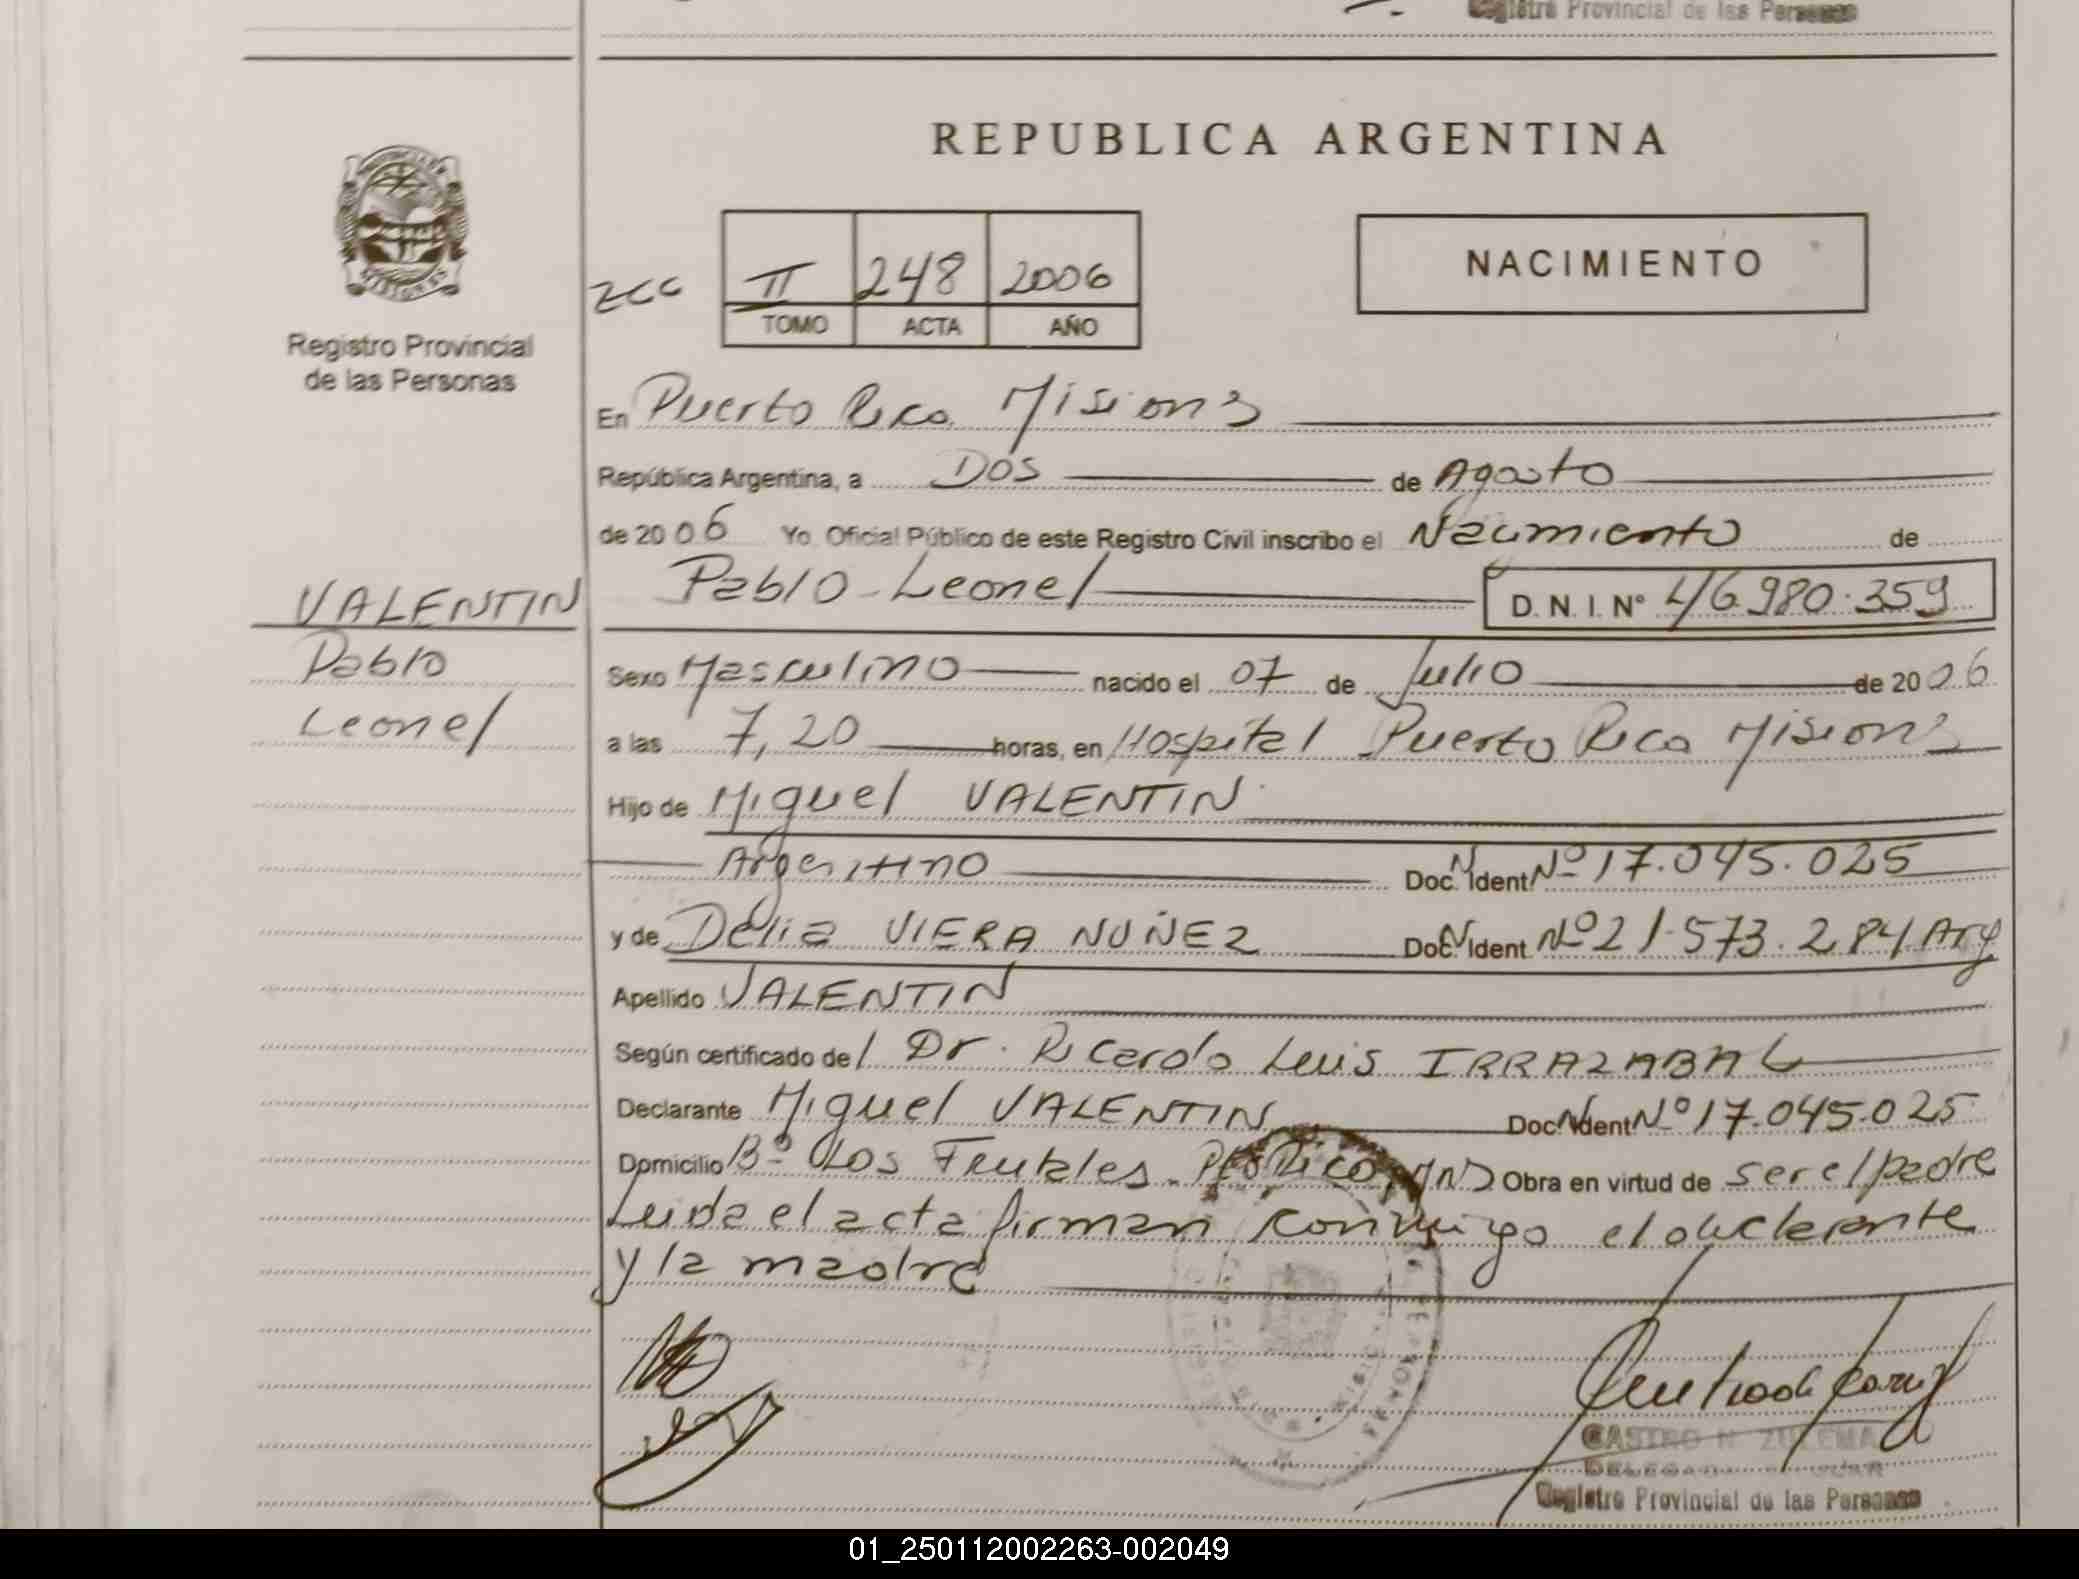 Registro Provincial de las Personas
REPUBLICA ARGENTINA
NACIMIENTO
II 248 2006
TOMO ACTA AÑO
Registro Provincial
de las Personas
En Puerto Rico Misiones
República Argentina, a Dos de Agosto
de 2006 Yo Oficial Público de este Registro Civil inscribo el Nacimiento de
Pablo Leonel D. N. I. Nº 46.980.359
VALENTIN
Pablo
Leonel
Sexo Masculino nacido el 07 de Julio de 2006
a las 7,20 horas, en Hospital Puerto Rico Misiones
Hijo de Miguel VALENTIN
Argentino Doc. Ident Nº 17.045.025
y de Delia VIERA NUÑEZ Doc. Ident Nº 21.573.284 Arg
Apellido VALENTIN
Según certificado del Dr. Ricardo Luis IRRAZABAL
Declarante Miguel VALENTIN Doc. Ident Nº 17.045.025
Domicilio Bº Los Frutales Pto Rico Mns Obra en virtud de ser el padre
Leida el acta firman conmigo el declarante
y la madre
CASTRO N. ZULEMA
Registro Provincial de las Personas
01_250112002263-002049